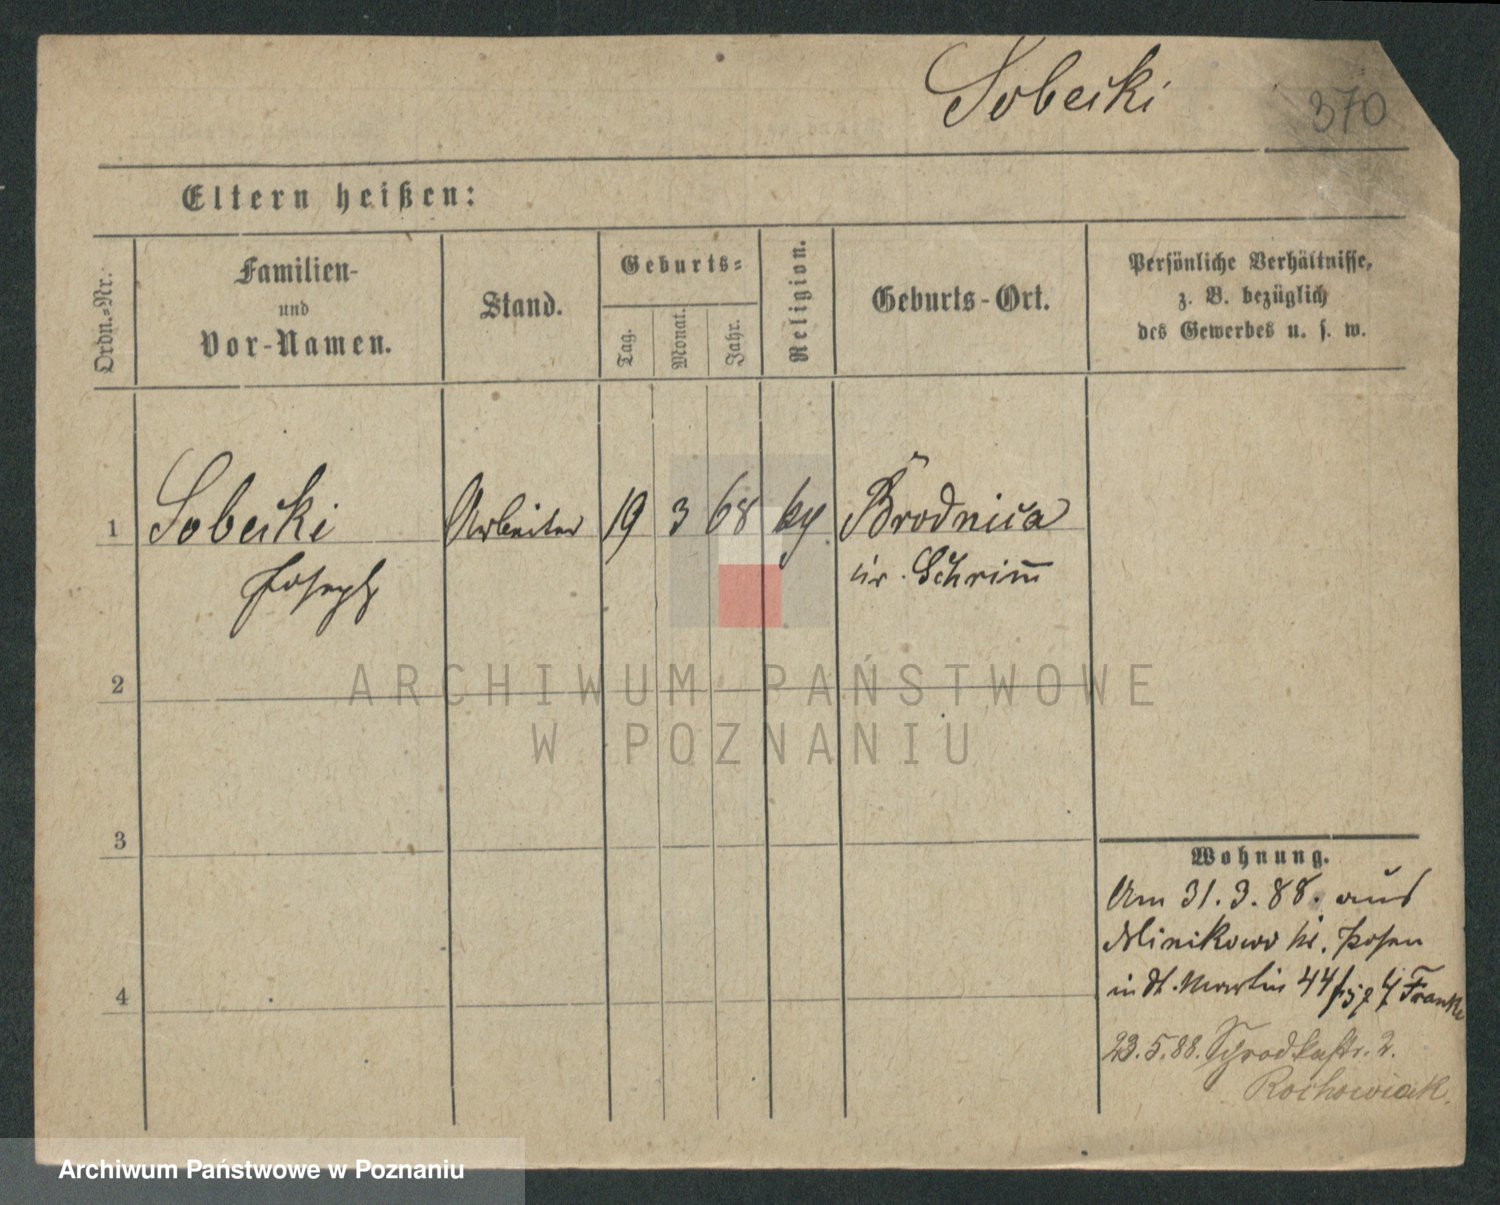 Sobecki
370
Eltern heißen:
Ordn.-Nr.
Familien-
und
Vor-Namen.
Stand.
Geburts-
Tag.
Monat.
Jahr.
Religion.
Geburts-Ort.
Persönliche Verhältnisse,
z. B. bezüglich
des Gewerbes u. s. w.
1 Sobecki Arbeiter 19 3 68 Brodnica
Joseph Schrim̅
2
3
4
Wohnung.
Am 31.3.88. aus
Posen
in St. Martin 44 Franke
23.5.88. Schrodkastr. 2.
Rochowiak.
ARCHIWUM PAŃSTWOWE
W POZNANIU
Archiwum Państwowe w Poznaniu